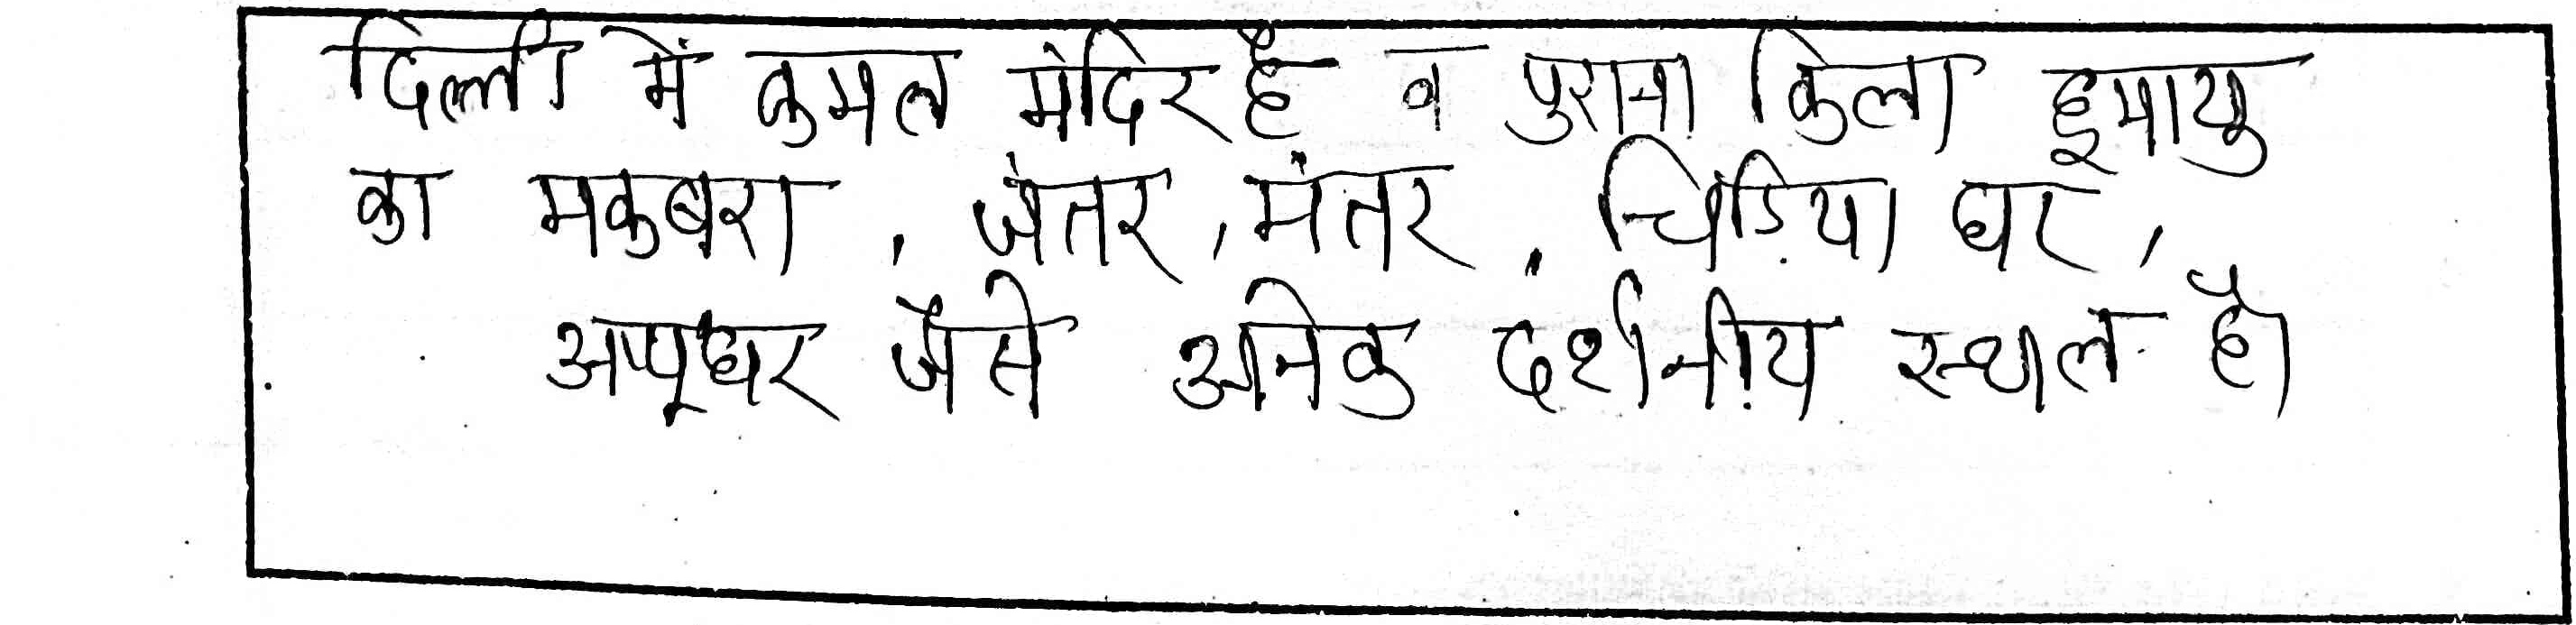 दिल्ली में कमल मंदिर है व पुराना किला हुमायु
का मकबरा , जंतर , मंतर , चिडि़या घर ,
अप्पूघर जैसे अनेक दर्शनीय स्थल है।